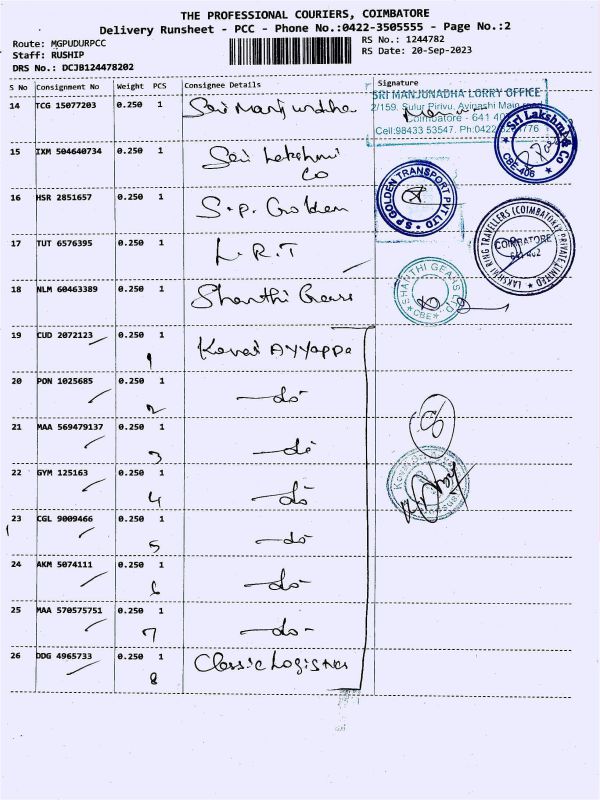 THE PROFESSIONAL COURIERS, COIMBATORE
Delivery Runsheet - PCC - Phone No.:0422-3505555 - Page No.:2
Route: MGPUDURPCC
Staff: RUSHIP
DRS No.: DCJB124478202
RS No.: 1244782
RS Date: 20-Sep-2023
S No Consignment No Weight PCS Consignee Details Signature
14 TCG 15077203 0.250 1 Sai Manjundha
SRI MANJUNADHA LORRY OFFICE
2/159, Sulur Pirivu, Avinashi Main road
Coimbatore - 641 40
Cell:98433 53547. Ph:0422
15 IXM 504640734 0.250 1 Sai Lakshmi
Co
Sri Lakshmi & Co
CBE-406
16 HSR 2851657 0.250 1 S.P. Golden
S P GOLDEN TRANSPORT PVT LTD
17 TUT 6576395 0.250 1 L.R.T
LAKSHMI RING TRAVELLERS (COIMBATORE) PRIVATE LIMITED
COIMBATORE
641 402
18 NLM 60463389 0.250 1 Shanthi Gears
SHANTHI GEARS
CBE
19 CUD 2072123 0.250 1 Kovai AYYappa
1
20 PON 1025685 0.250 1 -do-
2
21 MAA 569479137 0.250 1 -do
3
22 GYM 125163 0.250 1 -do-
4
23 CGL 9009466 0.250 1 -do-
5
24 AKM 5074111 0.250 1 -do-
6
25 MAA 570575751 0.250 1 -do-
7
26 DDG 4965733 0.250 1 Classic Logistics
8